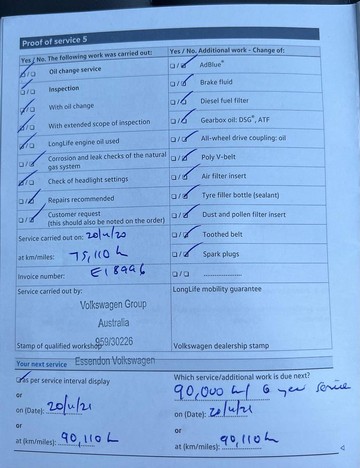 Proof of service 5
Yes / No. The following work was carried out:
Oil change service
Inspection
With oil change
With extended scope of inspection
LongLife engine oil used
Corrosion and leak checks of the natural
gas system
Check of headlight settings
Repairs recommended
Customer request
(this should also be noted on the order)
Service carried out on: 20/4/20
at km/miles: 75,110 k
Invoice number: E18996
Service carried out by:
Volkswagen Group
Australia
Stamp of qualified workshop 959/30226
Essendon Volkswagen
Yes / No. Additional work - Change of:
AdBlue®
Brake fluid
Diesel fuel filter
Gearbox oil: DSG®, ATF
All-wheel drive coupling: oil
Poly V-belt
Air filter insert
Tyre filler bottle (sealant)
Dust and pollen filter insert
Toothed belt
Spark plugs
....................
LongLife mobility guarantee
Volkswagen dealership stamp
Your next service
as per service interval display
or
on (Date): 20/4/21
or
at (km/miles): 90,110 k
Which service/additional work is due next?
90,000 k / 6 year service
on (Date): 20/4/21
or
at (km/miles): 90,110 k